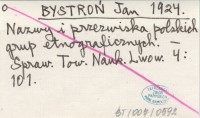 BYSTROŃ Jan 1924.
Nazwy i przezwiska polskich
grup etnograficznych. —
Spraw. Tow. Nauk. Lwow. 4:
101.